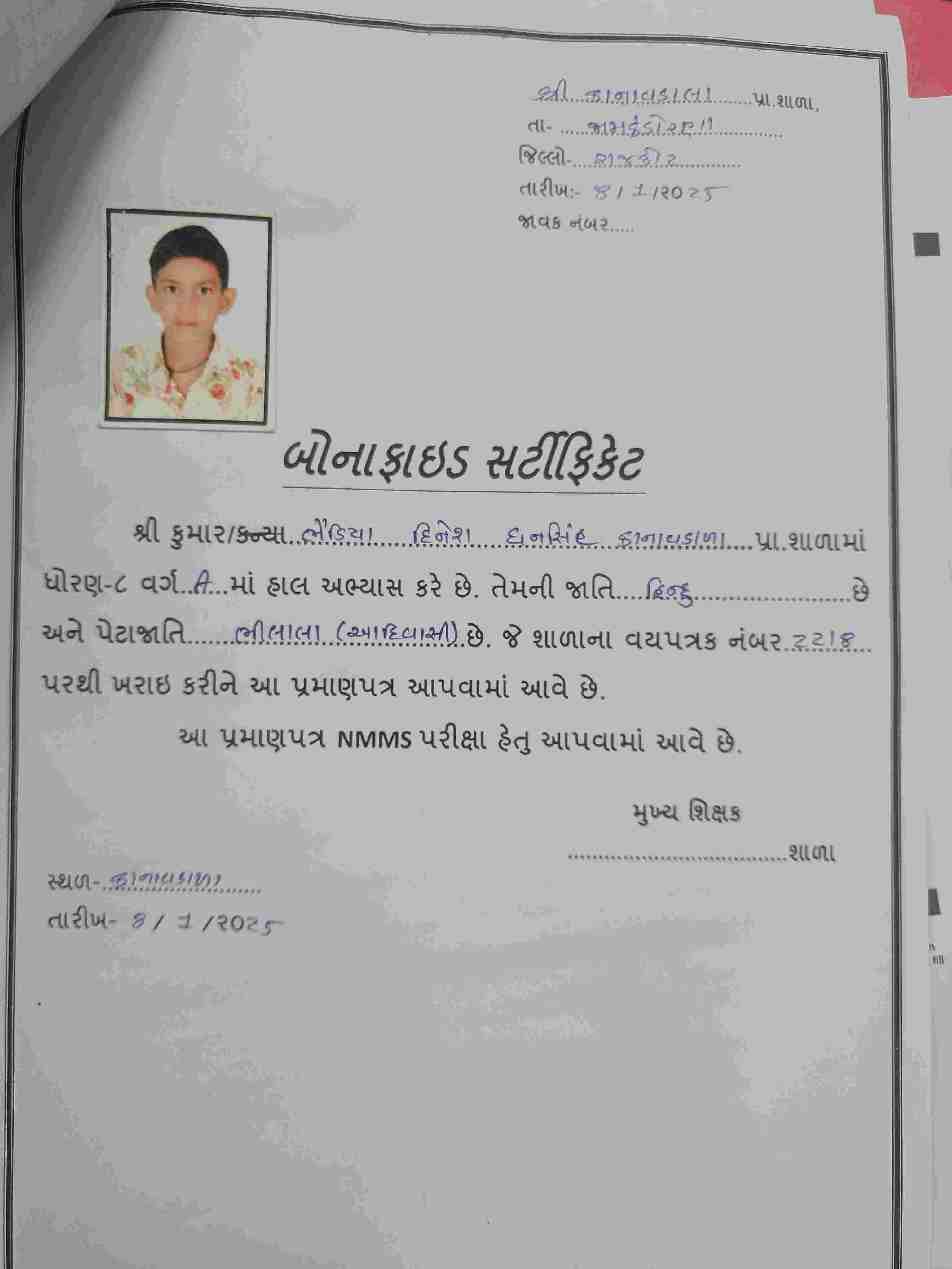 શ્રી કાનાવડાલા પ્રા.શાળા,
તા- જામકંડોરણા
જિલ્લો- રાજકોટ
તારીખ:- ૪/1/૨૦૨૫
જાવક નંબર.....
બોનાફાઇડ સર્ટીફિકેટ
શ્રી કુમાર/કન્યા ભેંડિયા દિનેશ ધનસિંહ કાનાવડાળા પ્રા.શાળામાં
ધોરણ-૮ વર્ગ A માં હાલ અભ્યાસ કરે છે. તેમની જાતિ હિન્દુ છે
અને પેટાજાતિ ભીલાલા (આદિવાસી) છે. જે શાળાના વયપત્રક નંબર ૨૨1૪
પરથી ખરાઇ કરીને આ પ્રમાણપત્ર આપવામાં આવે છે.
આ પ્રમાણપત્ર NMMS પરીક્ષા હેતુ આપવામાં આવે છે.
મુખ્ય શિક્ષક
..................................શાળા
સ્થળ- કાનાવડાળા
તારીખ- ૪/1/૨૦૨૫